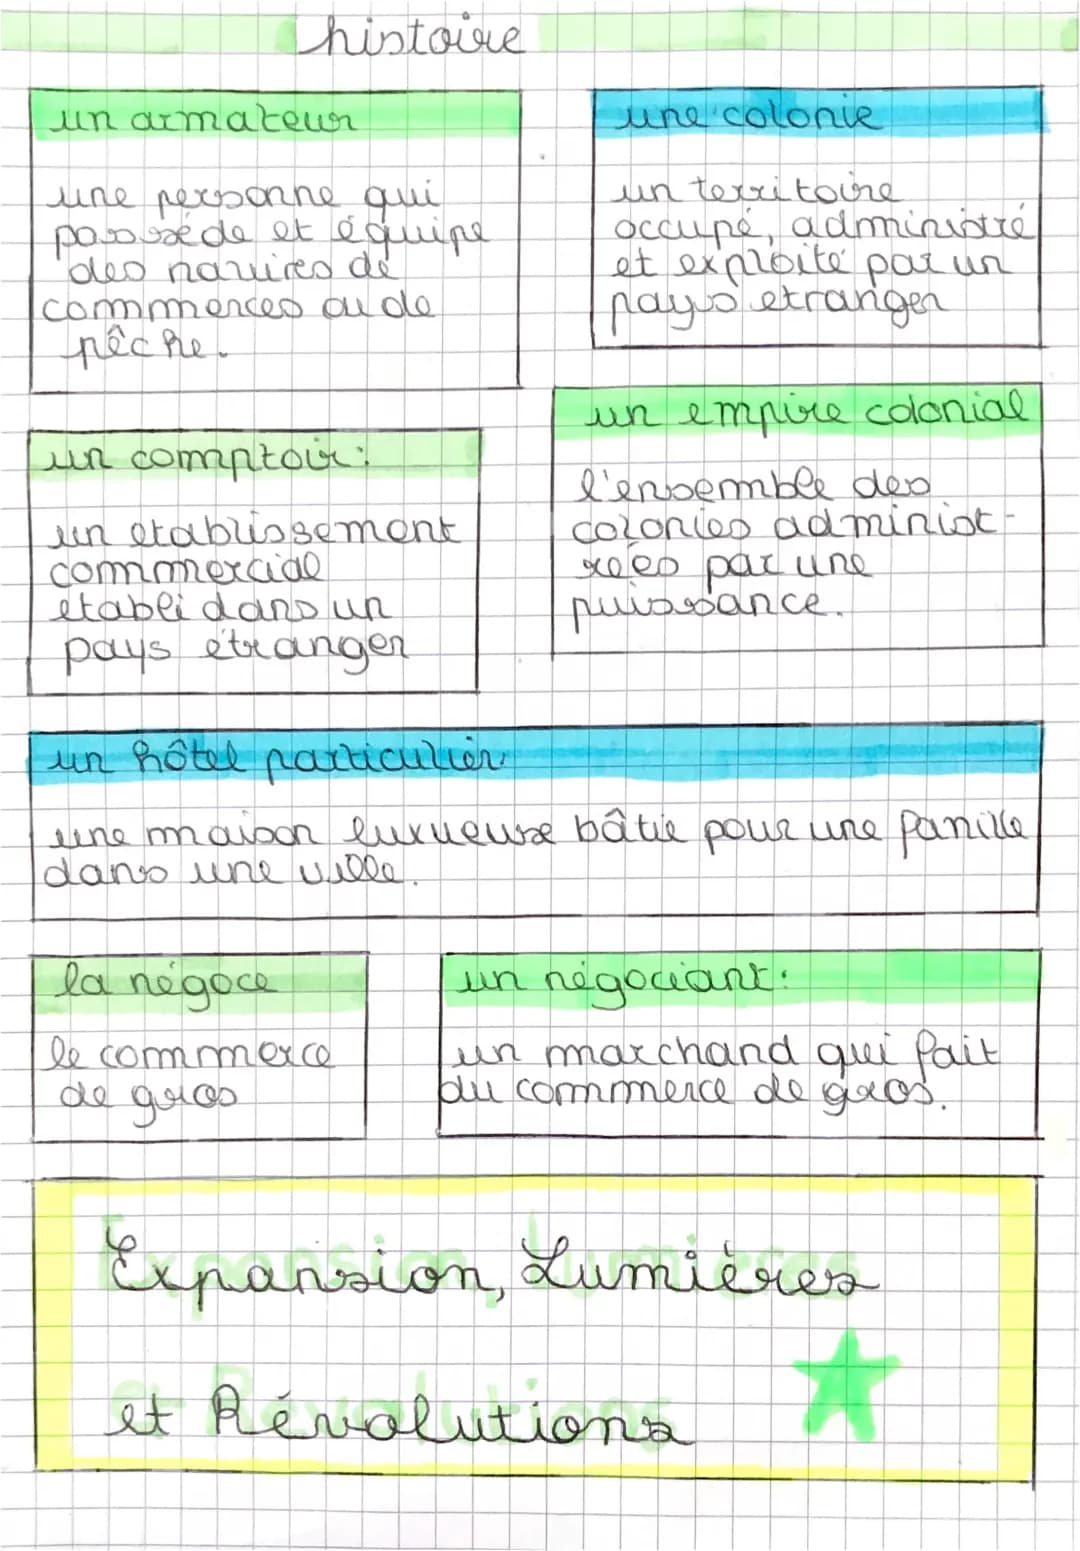 histoire
un armateur
une personne qui
possède et équipe
des navires de
commerces ou de
pêche.
une colonie
un territoire
occupé, administré
et exploité par un
pays etranger
un comptoir:
un etablissement
commercial
etabli dans un
pays étranger
un empire colonial
l'ensemble des
colonies administ-
rées par une
puissance.
un hôtel particulier
une maison luxueuse bâtie pour une famille
dans une ville.
la négoce
le commerce
de gros
un négociant:
un marchand qui fait
du commerce de gros.
Expansion, Lumières
et Révolutions